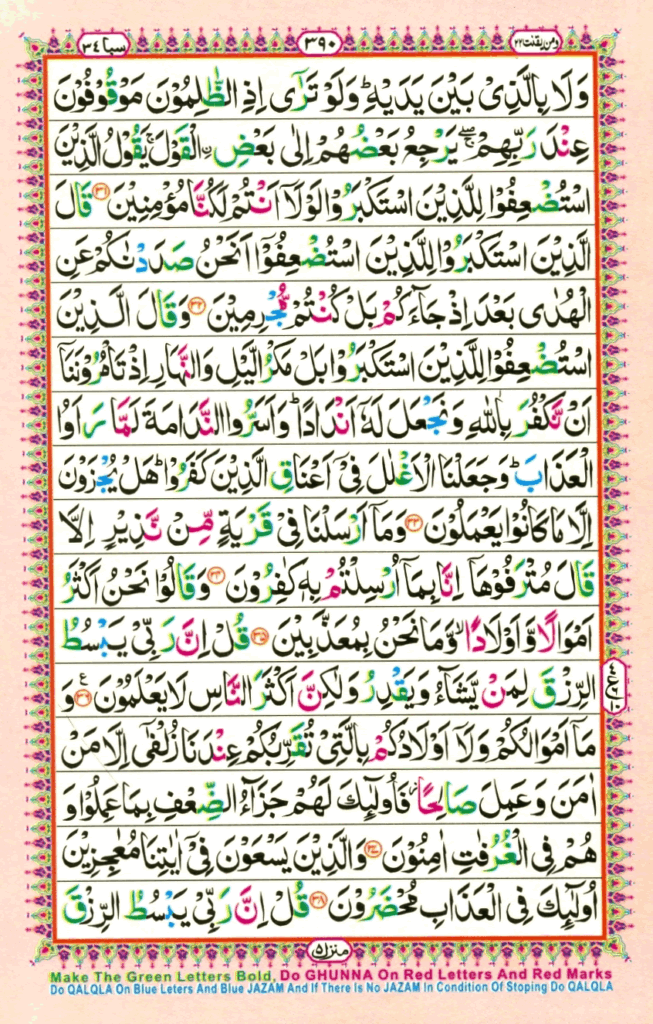 ومن یقنت ۲۲
۳۹۰
سبا ۳۴
وَلَا بِالَّذِیْ بَیْنَ یَدَیْهِ ؕ وَلَوْ تَرٰۤی اِذِ الظّٰلِمُوْنَ مَوْقُوْفُوْنَ
عِنْدَ رَبِّهِمْ ۖۚ یَرْجِعُ بَعْضُهُمْ اِلٰی بَعْضِ ِ۟الْقَوْلَ ۚ یَقُوْلُ الَّذِیْنَ
اسْتُضْعِفُوْا لِلَّذِیْنَ اسْتَكْبَرُوْا لَوْلَاۤ اَنْتُمْ لَكُنَّا مُؤْمِنِیْنَ ۳۱ قَالَ
الَّذِیْنَ اسْتَكْبَرُوْا لِلَّذِیْنَ اسْتُضْعِفُوْۤا اَنَحْنُ صَدَدْنٰكُمْ عَنِ
الْهُدٰی بَعْدَ اِذْ جَآءَكُمْ بَلْ كُنْتُمْ مُّجْرِمِیْنَ ۳۲ وَقَالَ الَّذِیْنَ
اسْتُضْعِفُوْا لِلَّذِیْنَ اسْتَكْبَرُوْا بَلْ مَكْرُ الَّیْلِ وَالنَّهَارِ اِذْ تَاْمُرُوْنَنَاۤ
اَنْ نَّكْفُرَ بِاللّٰهِ وَنَجْعَلَ لَهٗۤ اَنْدَادًا ؕ وَاَسَرُّوا النَّدَامَةَ لَمَّا رَاَوُا
الْعَذَابَ ؕ وَجَعَلْنَا الْاَغْلٰلَ فِیْۤ اَعْنَاقِ الَّذِیْنَ كَفَرُوْا ؕ هَلْ یُجْزَوْنَ
اِلَّا مَا كَانُوْا یَعْمَلُوْنَ ۳۳ وَمَاۤ اَرْسَلْنَا فِیْ قَرْیَةٍ مِّنْ نَّذِیْرٍ اِلَّا
قَالَ مُتْرَفُوْهَاۤ اِنَّا بِمَاۤ اُرْسِلْتُمْ بِهٖ كٰفِرُوْنَ ۳۴ وَقَالُوْا نَحْنُ اَكْثَرُ
اَمْوَالًا وَّاَوْلَادًا ۙ وَّمَا نَحْنُ بِمُعَذَّبِیْنَ ۳۵ قُلْ اِنَّ رَبِّیْ یَبْسُطُ
الرِّزْقَ لِمَنْ یَّشَآءُ وَیَقْدِرُ وَلٰكِنَّ اَكْثَرَ النَّاسِ لَا یَعْلَمُوْنَ ۳۶ ع وَ
مَاۤ اَمْوَالُكُمْ وَلَاۤ اَوْلَادُكُمْ بِالَّتِیْ تُقَرِّبُكُمْ عِنْدَنَا زُلْفٰۤی اِلَّا مَنْ
اٰمَنَ وَعَمِلَ صَالِحًا ؗ فَاُولٰٓىِٕكَ لَهُمْ جَزَآءُ الضِّعْفِ بِمَا عَمِلُوْا وَ
هُمْ فِی الْغُرُفٰتِ اٰمِنُوْنَ ۳۷ وَالَّذِیْنَ یَسْعَوْنَ فِیْۤ اٰیٰتِنَا مُعٰجِزِیْنَ
اُولٰٓىِٕكَ فِی الْعَذَابِ مُحْضَرُوْنَ ۳۸ قُلْ اِنَّ رَبِّیْ یَبْسُطُ الرِّزْقَ
منزل ۵
Make The Green Letters Bold, Do GHUNNA On Red Letters And Red Marks
Do QALQLA On Blue Leters And Blue JAZAM And If There Is No JAZAM In Condition Of Stoping Do QALQLA